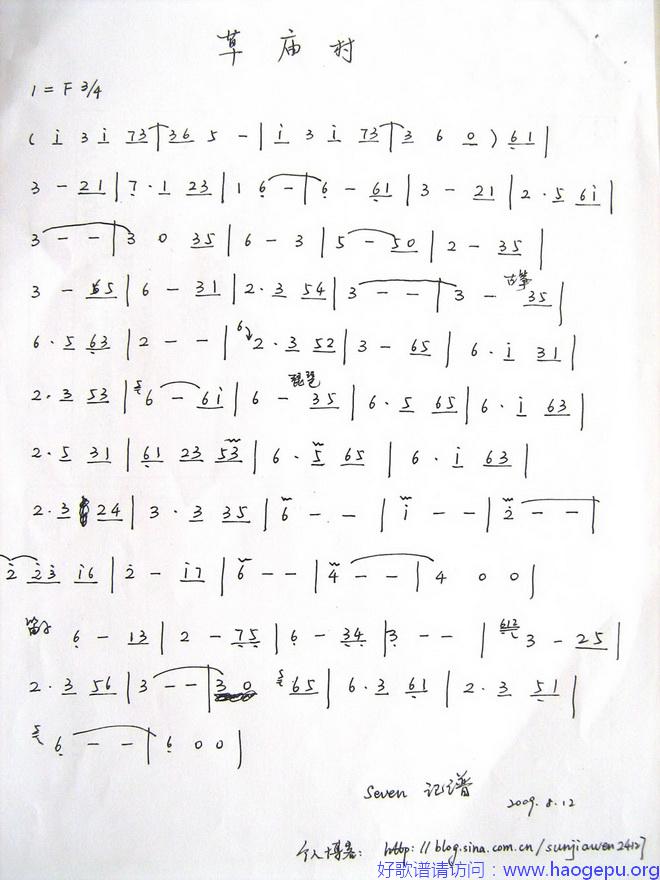 草庙村
1 = F 3/4
( i̇ 3 i̇ 73 | 36 5 - | i̇ 3 i̇ 73 | 3 6 0 ) 6̣1 |
3 - 21 | 7̣ · 1 23 | 1 6̣ - | 6̣ - 6̣1 | 3 - 21 | 2 · 5 6i̇ |
3 - - | 3 0 35 | 6 - 3 | 5 - 50 | 2 - 35 |
3 - 65 | 6 - 31 | 2 · 3 54 | 3 - - | 3 - 古筝 35 |
6 · 5 6̣3 | 2 - - | 6 2 · 3 52 | 3 - 65 | 6 · i̇ 31 |
2 · 3 53 | 5 6 - 6i̇ | 6 - 琵琶 35 | 6 · 5 65 | 6 · i̇ 63 |
2 · 5 31 | 6̣1 23 53 | 6 · 5 65 | 6 · i̇ 63 |
2 · 3 24 | 3 · 3 35 | 6 - - | i̇ - - | 2̇ - - |
2̇ 2̇3̇ i̇6 | 2̇ - i̇7 | 6 - - | 4 - - | 4 0 0 |
笛子 6̣ - 13 | 2 - 7̣5̣ | 6̣ - 3̣4̣ | 3̣ - - | 612 3 - 25 |
2 · 3 56 | 3 - - | 3 0 5 65 | 6 · 3 6̣1 | 2 · 3 5̣1 |
5 6̣ - - | 6̣ 0 0 |
Seven 记谱 2009.8.12
个人博客: http://blog.sina.com.cn/sunjiawen2417
好歌谱请访问：www.haogepu.org